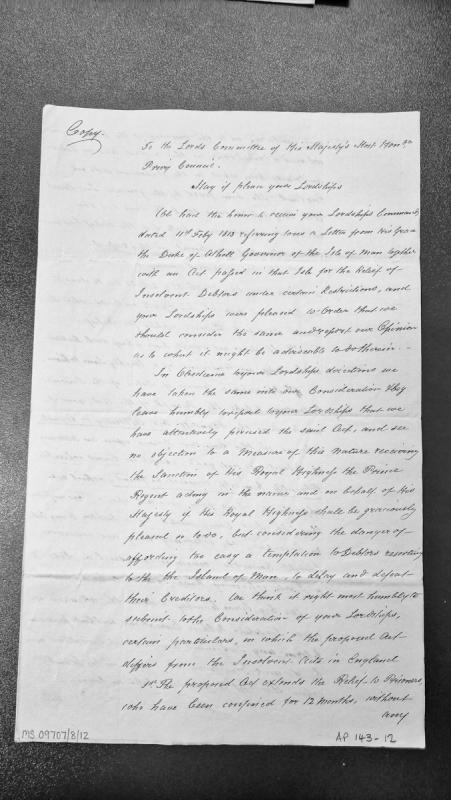 Copy.
To the Lords Committee of His Majesty's Most Honble
Privy Council.
May it please your Lordships
We had the honor to receive your Lordships Commands
dated 11th Feby 1813 referring to us a Letter from His Grace
the Duke of Atholl Governor of the Isle of Man together
with an Act passed in that Isle for the Relief of
Insolvent Debtors under certain Restrictions, and
your Lordships were pleased to Order that we
should consider the same and report our Opinion
as to what it might be adviseable to do therein. -
In Obedience to your Lordships directions we
have taken the same into our Consideration &
leave humbly to report to your Lordships that we
have attentively perused the said Act, and see
no objection to a Measure of this Nature receiving
the Sanction of His Royal Highness the Prince
Regent acting in the name and on behalf of His
Majesty if His Royal Highness shall be graciously
pleased so to do, but considering the danger of
affording too easy a temptation to Debtors resorting
to the the Island of Man, to delay and defeat
their Creditors. We think it right most humbly to
submit to the Consideration of your Lordships,
certain particulars, in which the proposed Act
differs from the Insolvent Acts in England
1st The proposed Act extends the Relief to Prisoners,
who have been confined for 12 months, without
any
MS 09707/8/12
AP 143-12